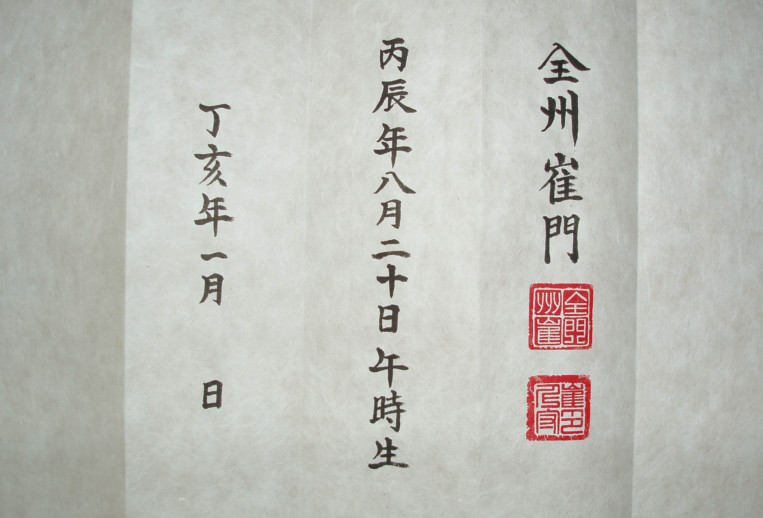 全州崔門
全州崔門
丙辰年八月二十日午時生
丁亥年一月 日